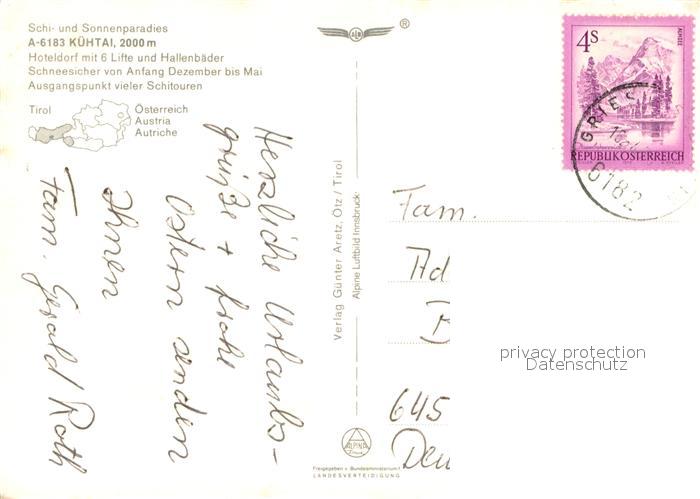 Schi- und Sonnenparadies
A-6183 KÜHTAI, 2000 m
Hoteldorf mit 6 Lifte und Hallenbäder
Schneesicher von Anfang Dezember bis Mai
Ausgangspunkt vieler Schitouren
Tirol
Österreich
Austria
Autriche
®
Herzliche Urlaubs-
grüße + frohe
Ostern senden
Ihnen
Fam. Gerald Roth
Verlag Günter Aretz, Ötz / Tirol
Alpine Luftbild Innsbruck
ALPINE
Freigegeben v. Bundesministerium f.
LANDESVERTEIDIGUNG
4S
ALMSEE
REPUBLIK ÖSTERREICH
GRIES
6182
Fam.
Ad
645
Deu
privacy protection
Datenschutz